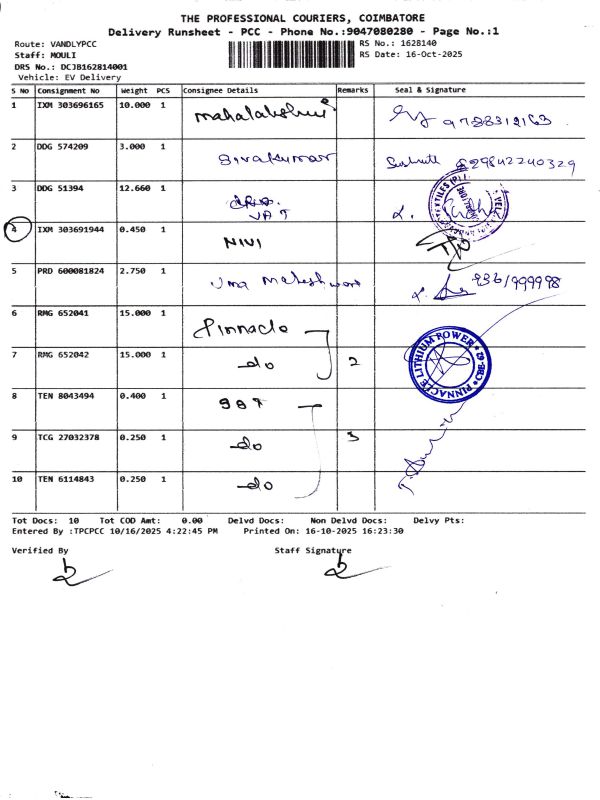 THE PROFESSIONAL COURIERS, COIMBATORE
Delivery Runsheet - PCC - Phone No.:9047080280 - Page No.:1
Route: VANDLYPCC
RS No.: 1628140
Staff: MOULI
RS Date: 16-Oct-2025
DRS No.: DCJB162814001
Vehicle: EV Delivery
S No Consignment No Weight PCS Consignee Details Remarks Seal & Signature
1 IXM 303696165 10.000 1 Mahalakshmi 9788312163
2 DDG 574209 3.000 1 Sivakumar 9842240329
3 DDG 51394 12.660 1 VAT
4 IXM 303691944 0.450 1 NIVI
5 PRD 600081824 2.750 1 Uma Maheshwari 936/999998
6 RMG 652041 15.000 1 Pinnacle
7 RMG 652042 15.000 1 -do 2 PINNACLE LITHIUM POWER CBE-62
8 TEN 8043494 0.400 1
9 TCG 27032378 0.250 1 -do 3
10 TEN 6114843 0.250 1 -do
Tot Docs: 10 Tot COD Amt: 0.00 Delvd Docs: Non Delvd Docs: Delvy Pts:
Entered By :TPCPCC 10/16/2025 4:22:45 PM Printed On: 16-10-2025 16:23:30
Verified By Staff Signature